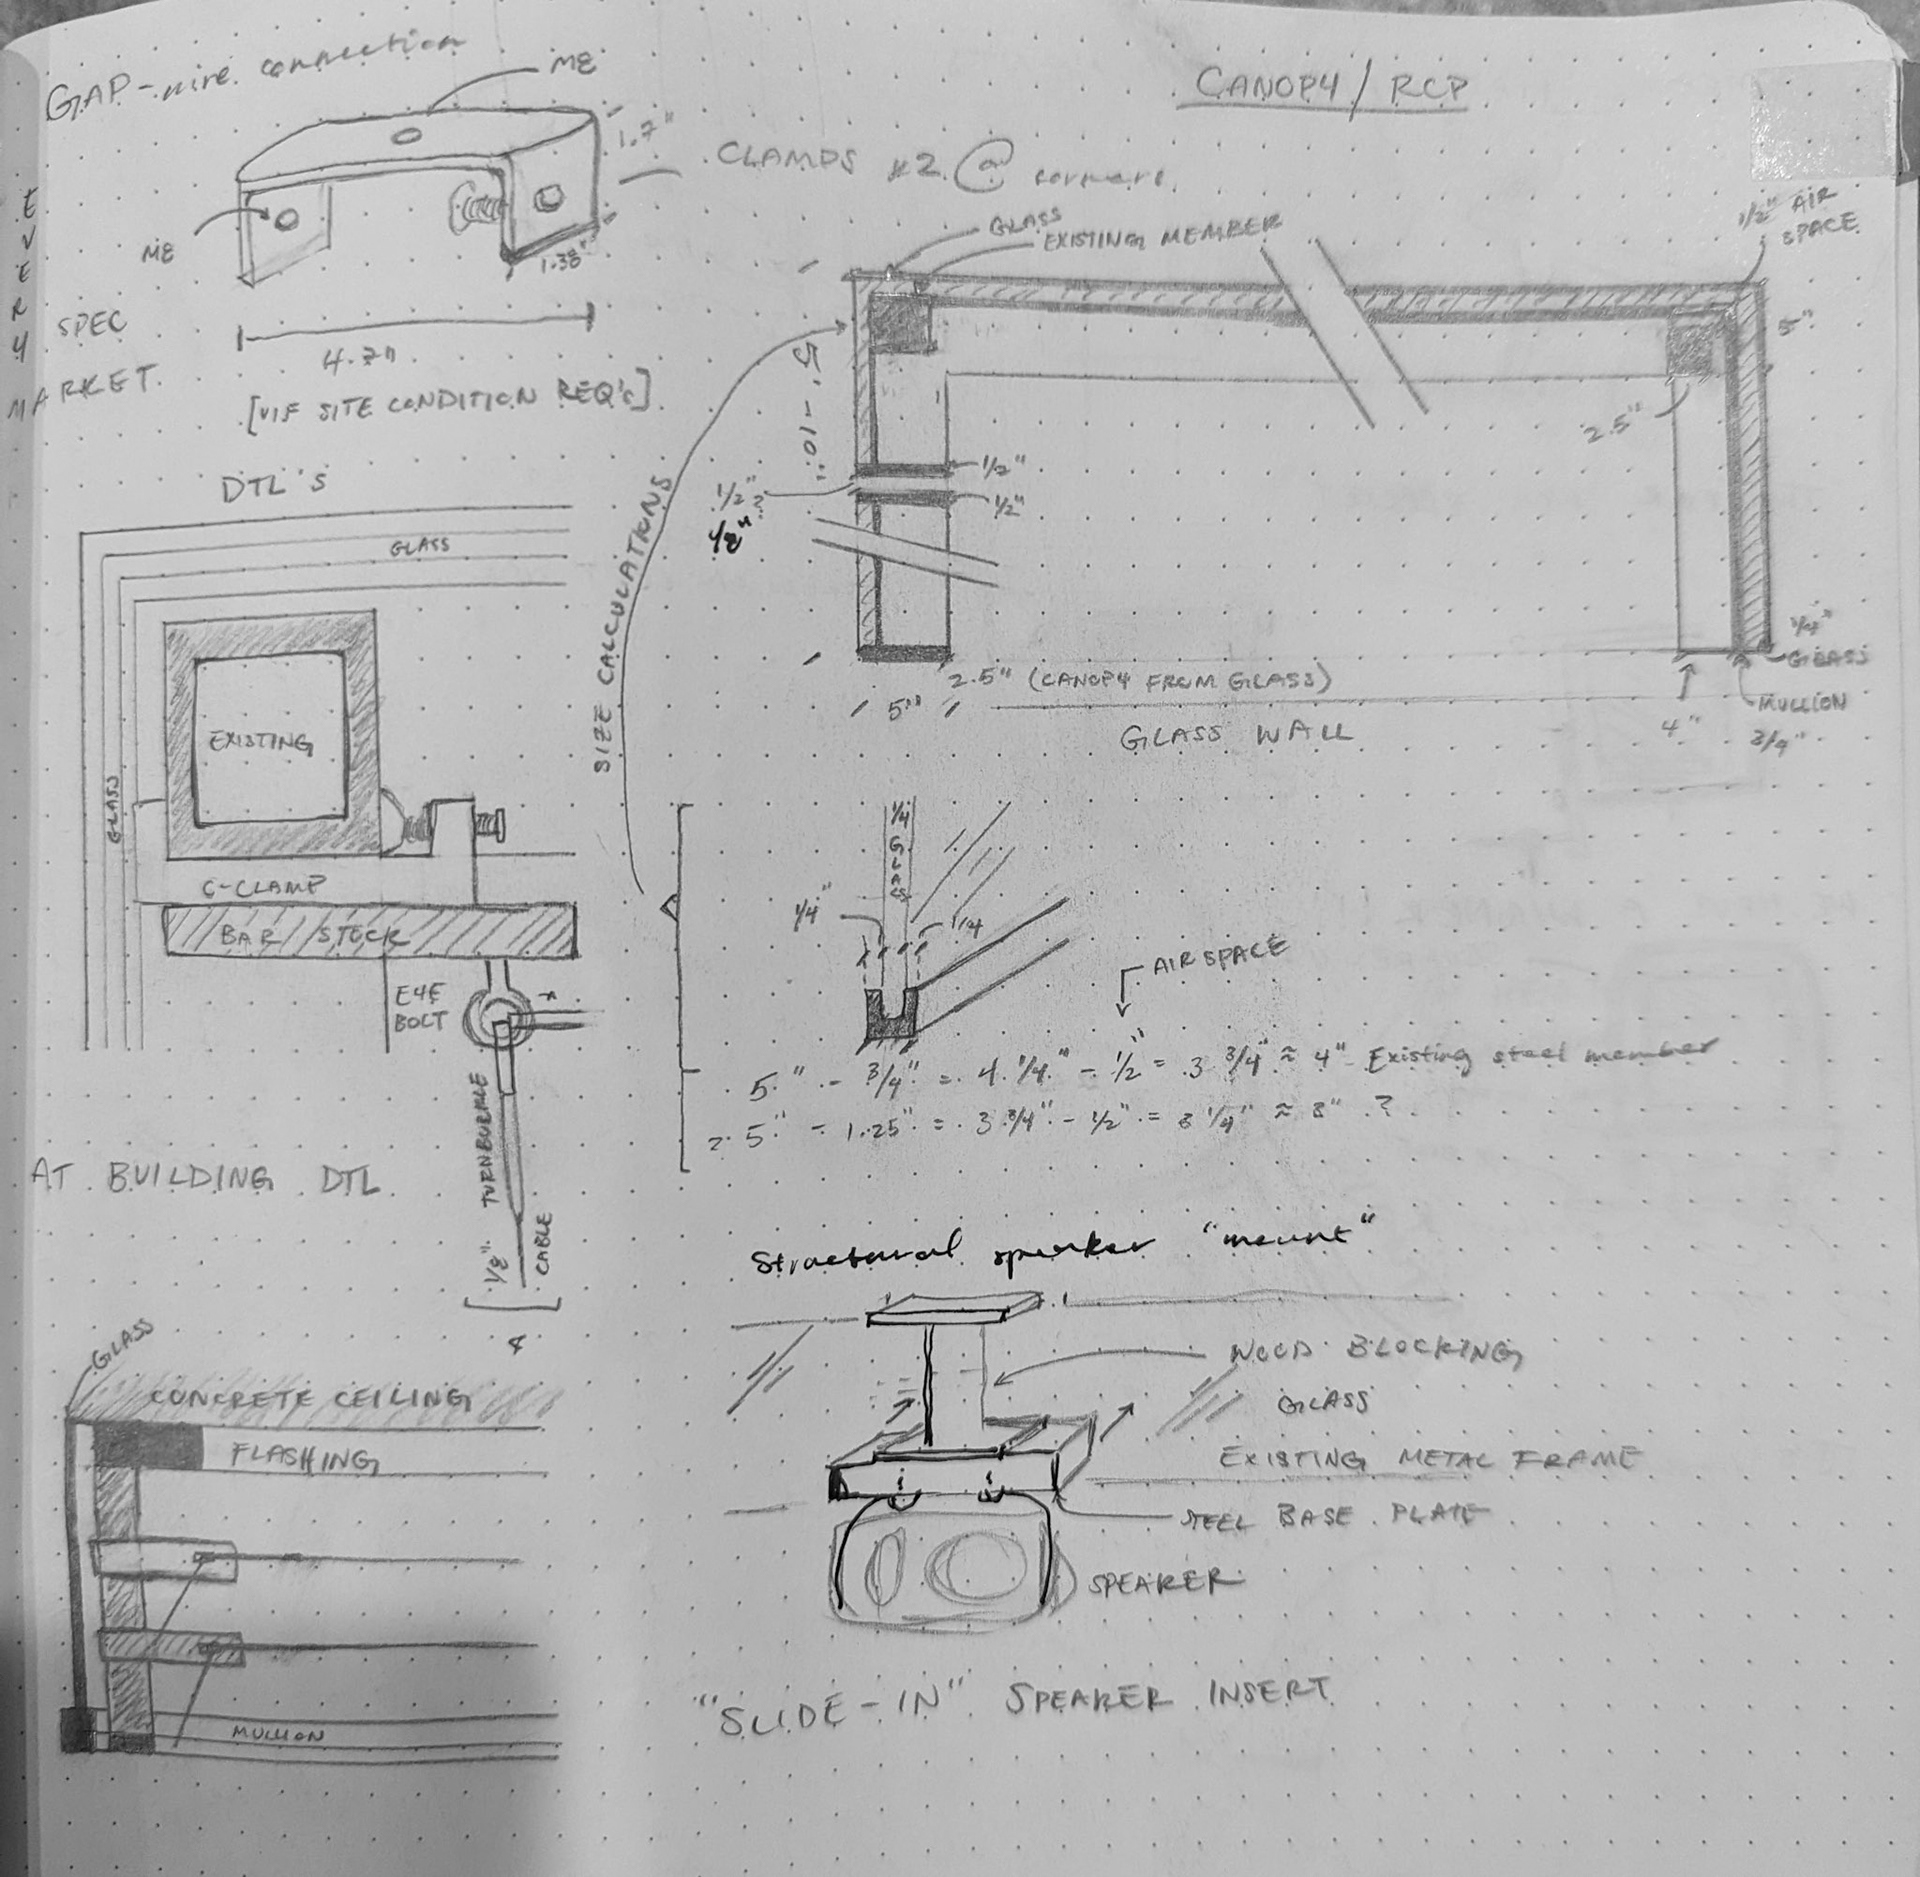 GAP-wire connection
M8
1.7"
CLAMPS x2 @ corners
M8
1.38"
4.7"
[VIF SITE CONDITION REQ's]
EVERY
SPEC
MARKET
CANOPY / RCP
GLASS
EXISTING MEMBER
1/2" AIR
SPACE
5"
2.5"
5'-10"
1/2"
1/2"
1/2"?
1/8"
SIZE CALCULATIONS
2.5" (CANOPY FROM GLASS)
5"
GLASS WALL
1/4"
GLASS
4"
MULLION
3/4"
DTL'S
GLASS
GLASS
EXISTING
C-CLAMP
BAR STOCK
EYE
BOLT
TURNBUCKLE
1/8"
CABLE
1/4
GLASS
1/4"
1/4
AIR SPACE
5" - 3/4" = 4 1/4" - 1/2" = 3 3/4" ≈ 4" Existing steel member
2. 5" - 1.25" = 3 3/4" - 1/2" = 3 1/4" ≈ 3" ?
AT BUILDING DTL
GLASS
CONCRETE CEILING
FLASHING
MULLION
Structural speaker "mount"
WOOD BLOCKING
GLASS
EXISTING METAL FRAME
STEEL BASE PLATE
SPEAKER
"SLIDE-IN" SPEAKER INSERT